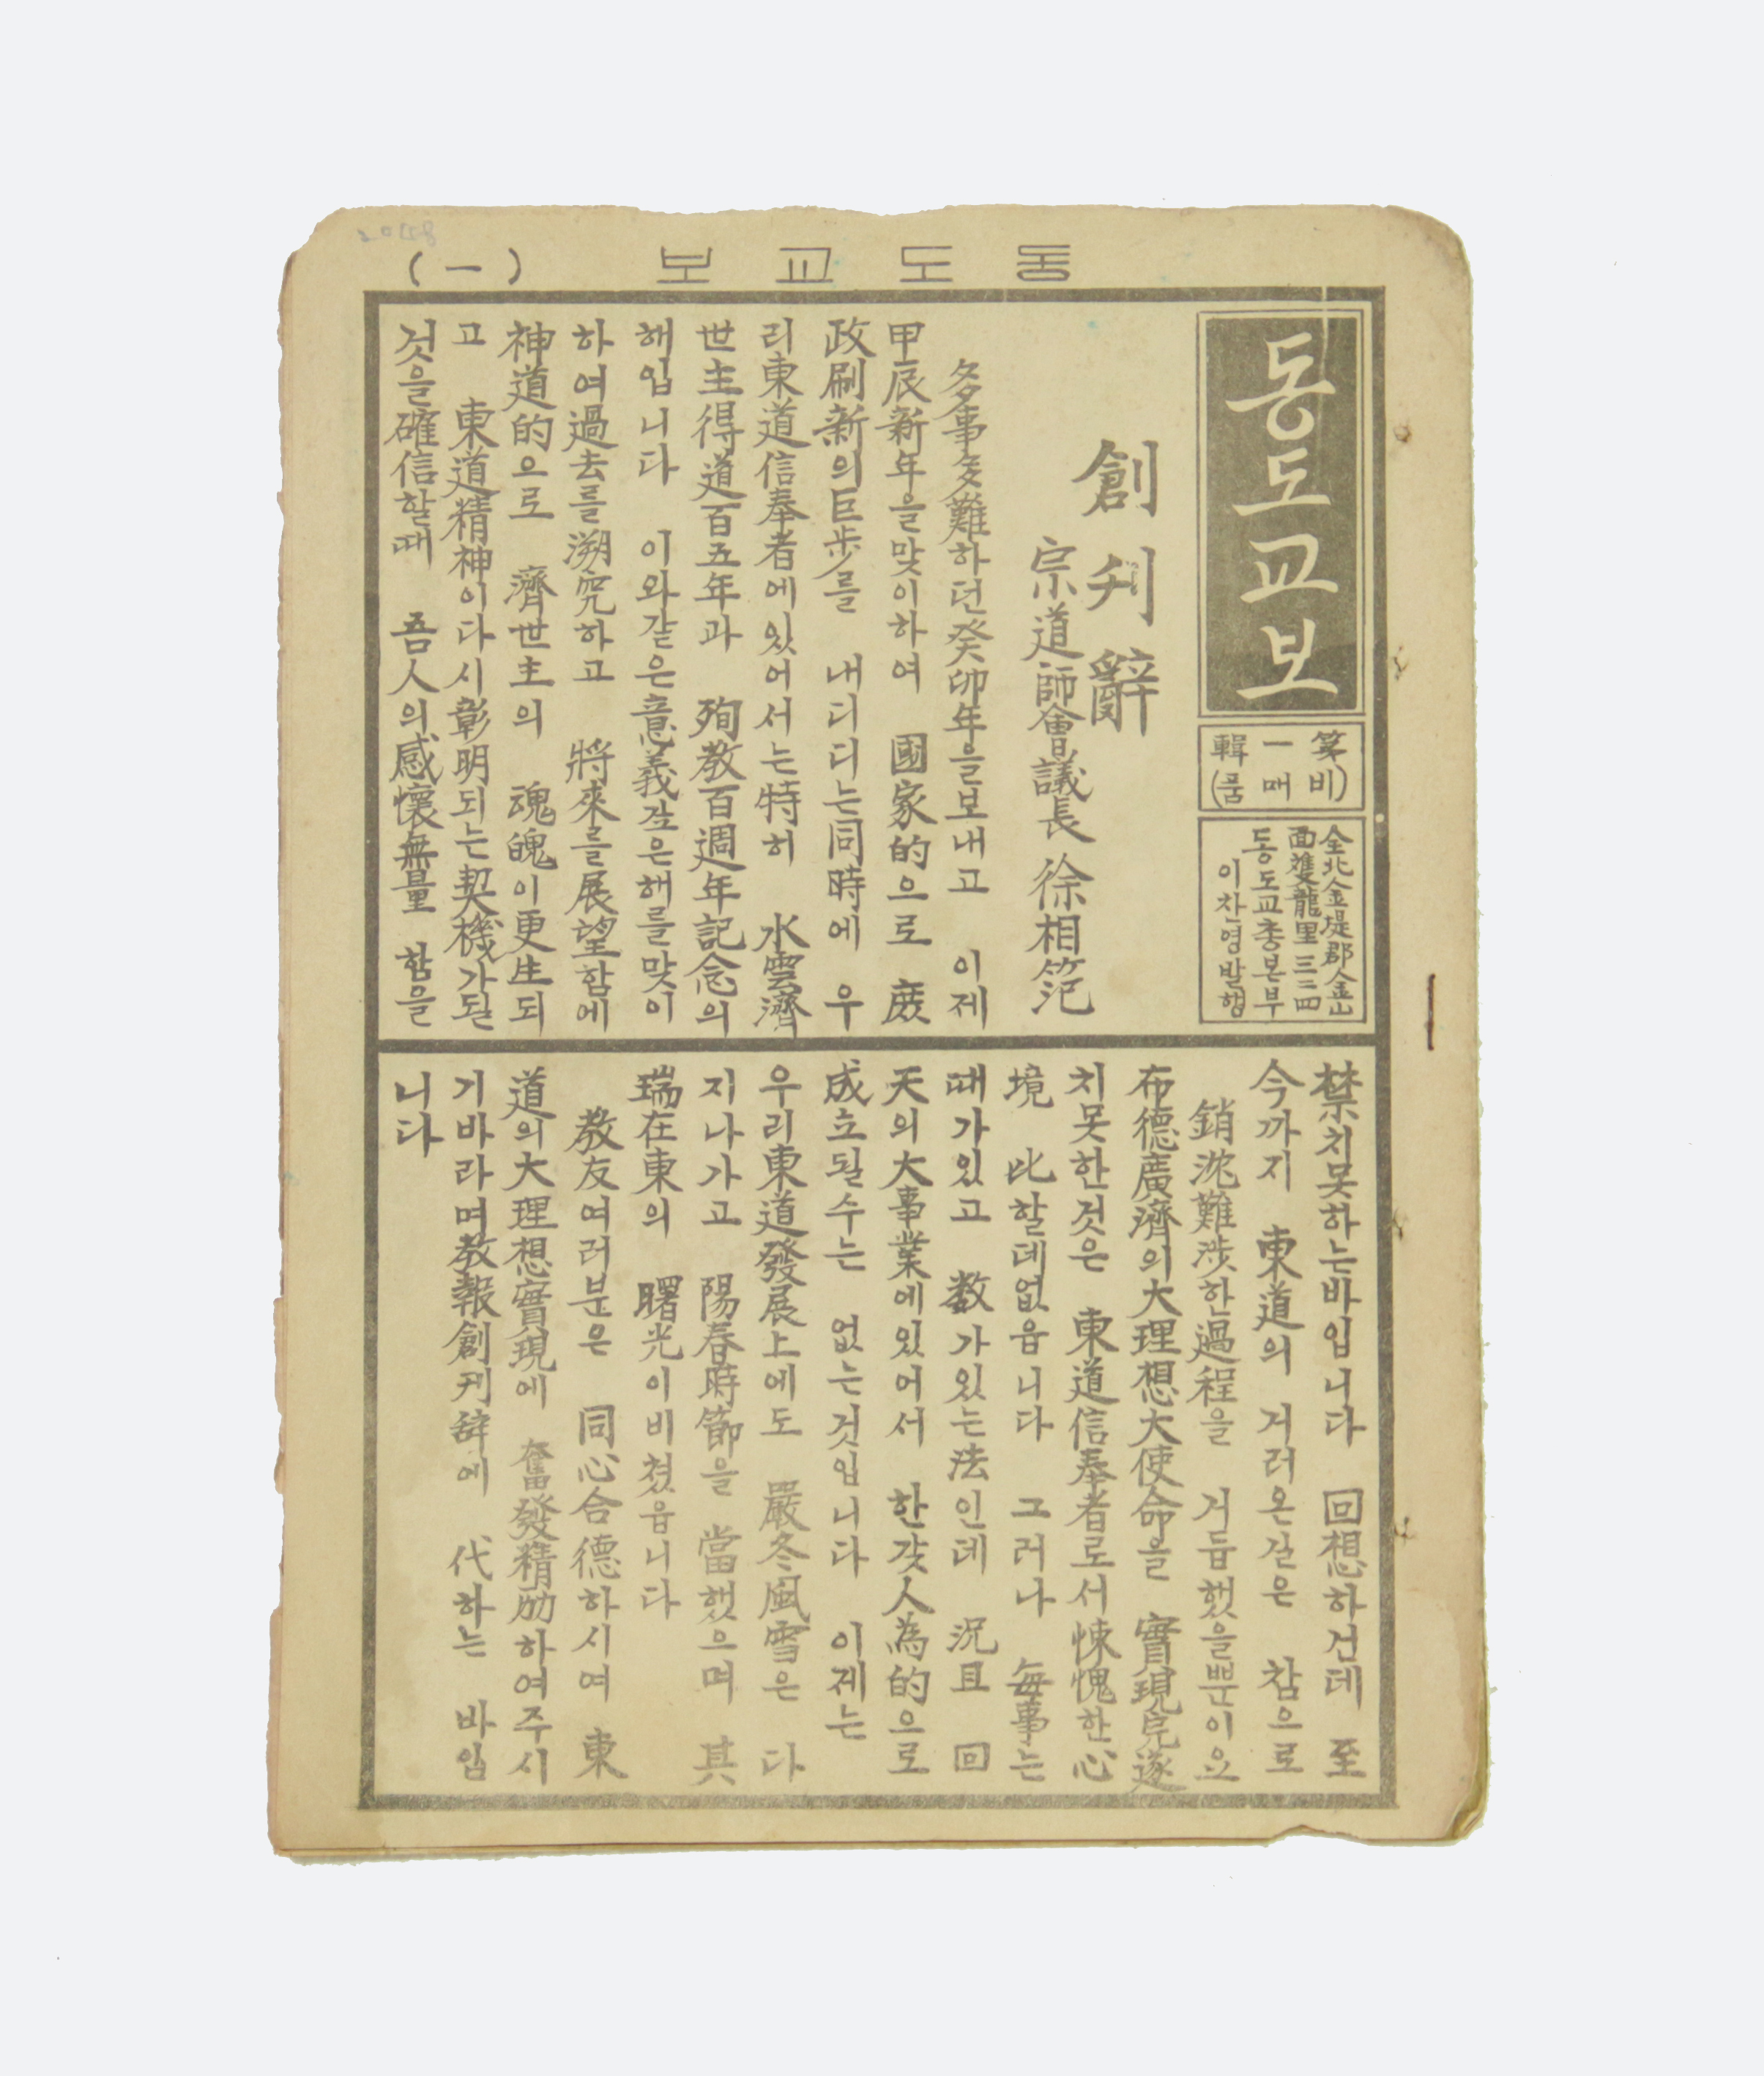 동도교보
(一)
동도교보
第一輯
(비매품)
全北金堤郡金山
面雙龍里三三四
동도교총본부
이찬영발행
創刊辭
宗道師會議長 徐相范
多事多難하던癸卯年을보내고 이제
甲辰新年을맞이하여 國家的으로 庶
政刷新의巨步를 내디디는同時에 우
리東道信奉者에있어서는特히 水雲濟
世主得道百五年과 殉教百週年記念의
해입니다 이와같은意義깊은해를맞이
하여過去를溯究하고 將來를展望함에
神道的으로 濟世主의 魂魄이更生되
고 東道精神이다시彰明되는契機가될
것을確信할때 吾人의感懷無量 함을
禁치못하는바입니다 回想하건데 至
今까지 東道의 거러온길은 참으로
銷沈難涉한過程을 거듭했을뿐이요
布德廣濟의大理想大使命을 實現完遂
치못한것은 東道信奉者로서悚愧한心
境 比할데없읍니다 그러나 每事는
때가있고 数가있는法인데 況且 回
天의大事業에있어서 한갓人為的으로
成立될수는 없는것입니다 이제는
우리東道發展上에도 嚴冬風雪은 다
지나가고 陽春時節을 當했으며 其
瑞在東의 曙光이비쳤읍니다
教友여러분은 同心合德하시여 東
道의大理想實現에 奮發精励하여주시
기바라며教報創刊辞에 代하는 바입
니다